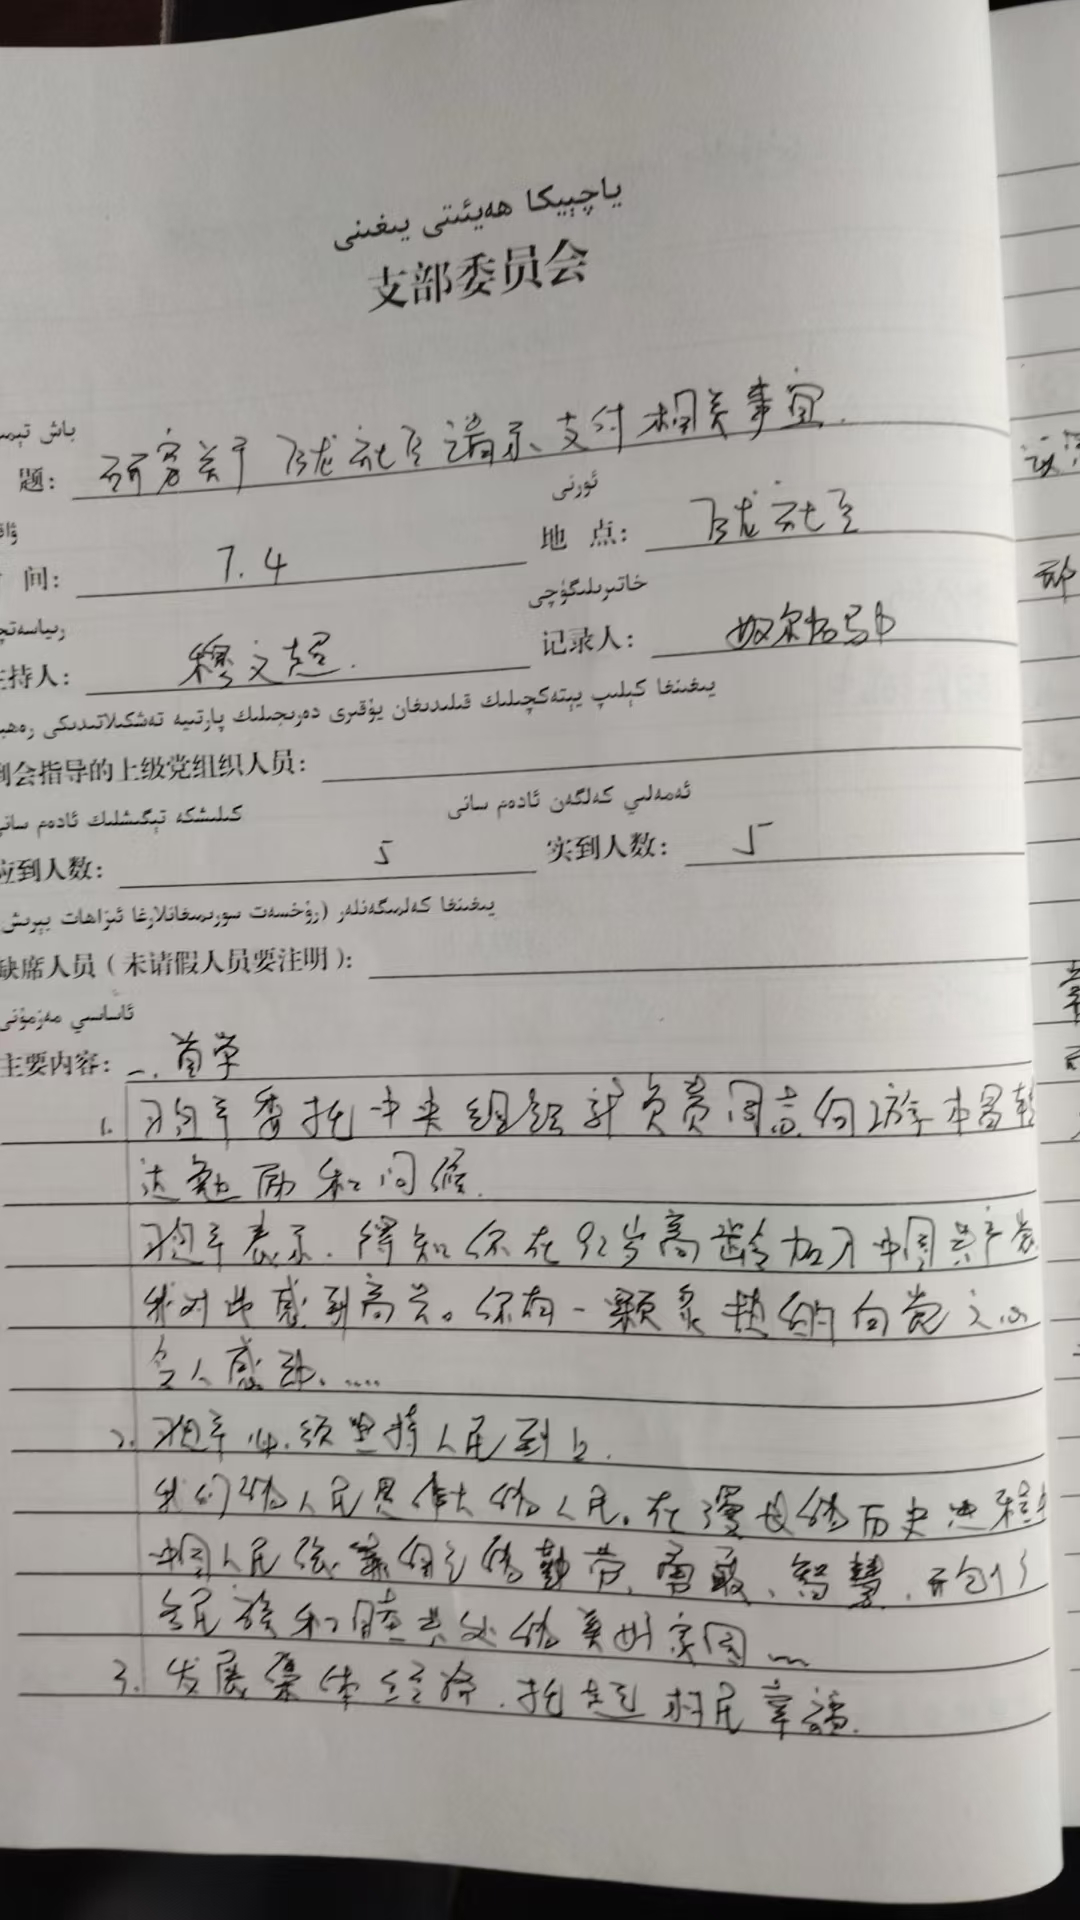 ياچېيكا ھەيئىتى يىغىنى
支部委员会
باش تېمى
题: 研究关于 请示、支付相关事宜.
ئورنى
间: 7.4 地 点:
خاتىرىلىگۈچى
رىياسەتچ
主持人: 穆文超. 记录人:
يىغىنغا كېلىپ يېتەكچىلىك قىلىدىغان يۇقىرى دەرىجىلىك پارتىيە تەشكىلاتىدىكى رەھبە
到会指导的上级党组织人员:
كېلىشكە تېگىشلىك ئادەم سانى ئەمەلىي كەلگەن ئادەم سانى
应到人数: 5 实到人数: 5
يىغىنغا كەلمىگەنلەر (رۇخسەت سورىمىغانلارغا ئىزاھات بېرىش
缺席人员(未请假人员要注明):
ئاساسىي مەزمۇنى
主要内容: 一. 首学
1. 习总书 委托中央组织部负责同志向 本昌转
达勉励和问候.
习总书表示. 得知你在92岁高龄加入中国共产党
我对此感到高兴。你有一颗炙热的向党之心
令人感动.....
2. 习总书 必须坚持人民至上.
我们的人民是伟大的人民。在漫长的历史进程中
中国人民依靠自己的勤劳、勇敢、智慧,开创了
各民族和睦共处的美好家园
3. 发展集体经济.托起村民幸福.